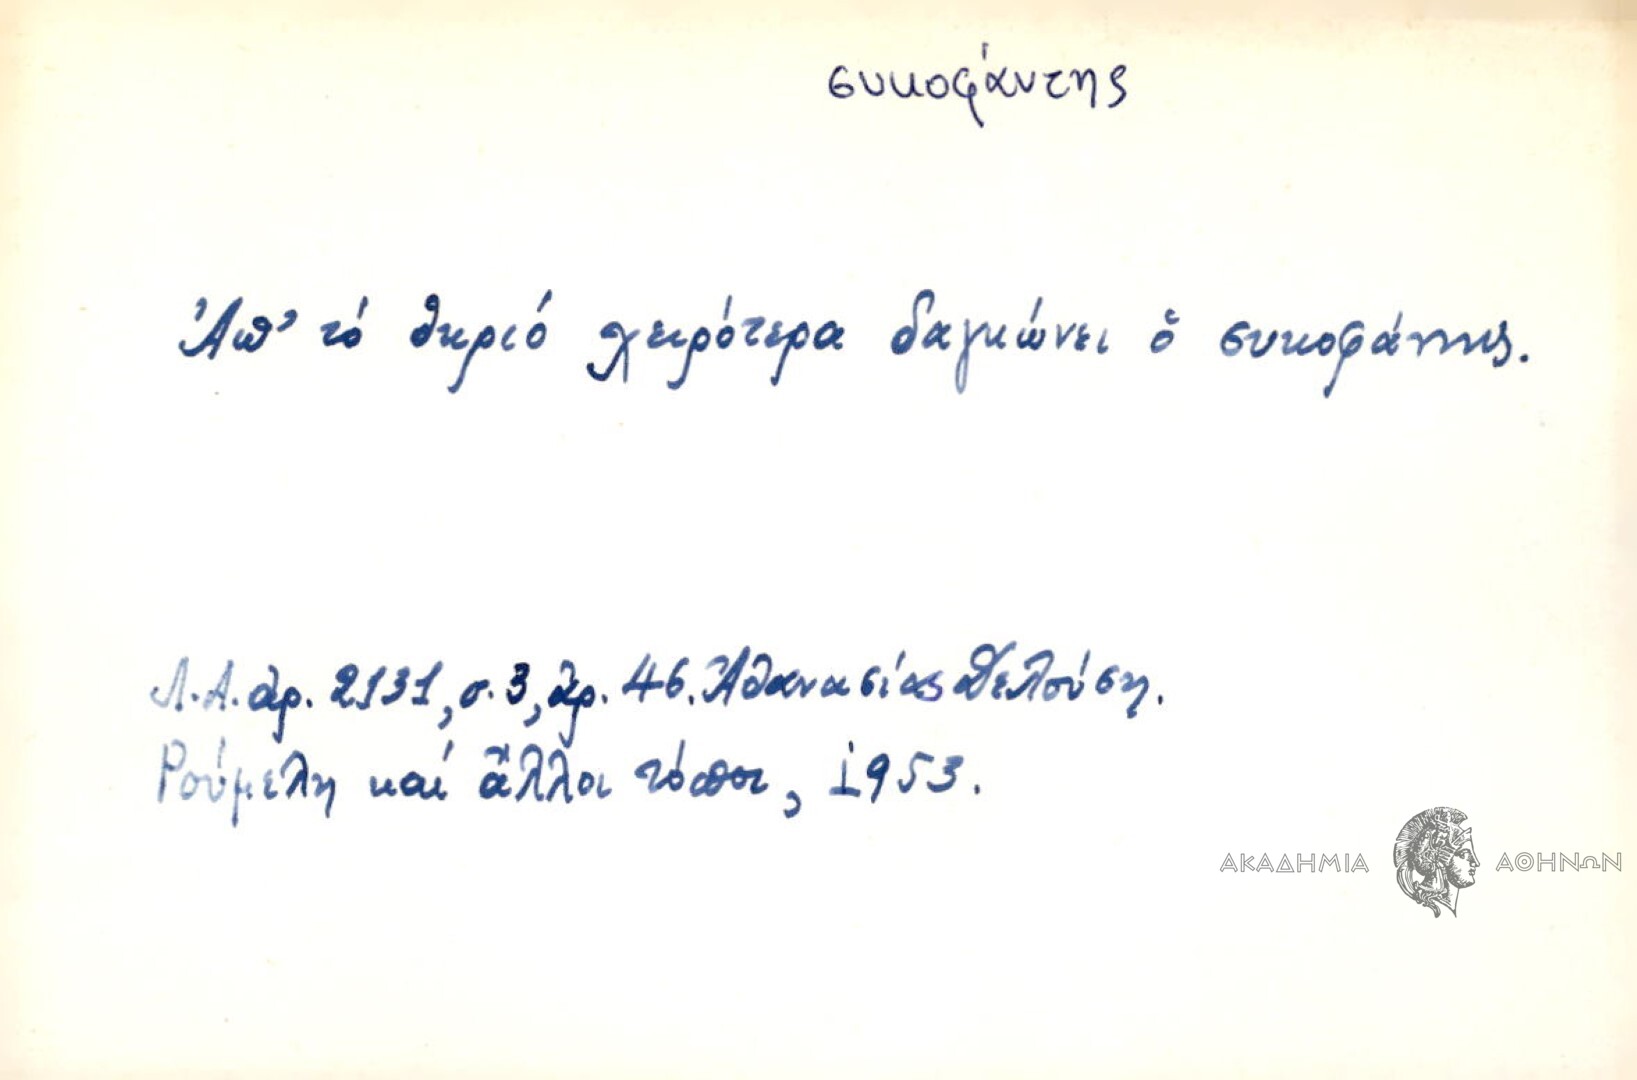 συκοφάντης
Ἀπ' τό θηριό χειρότερα δαγκώνει ὁ συκοφάντης.
Λ.Α. ἀρ. 2131, σ. 3, ἀρ. 46. Ἀθανασίας
Ρούμελη καί ἄλλοι τόποι, 1953.
ΑΚΑΔΗΜΙΑ ΑΘΗΝΩΝ